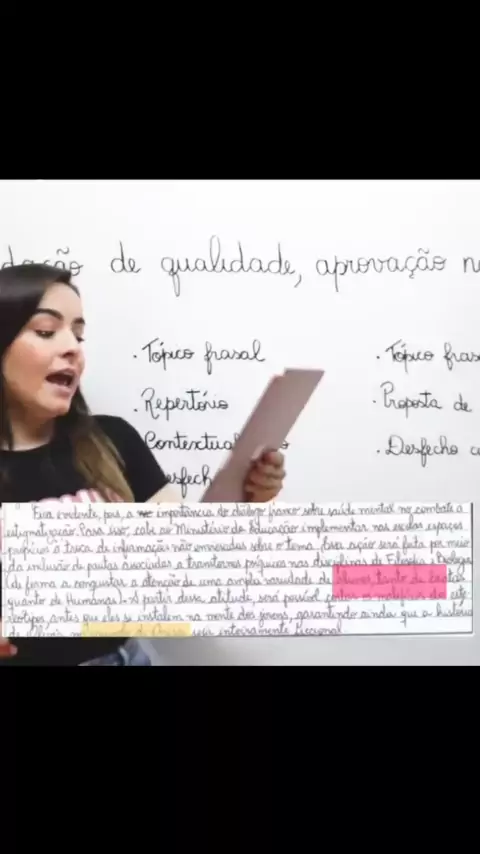 dação de qualidade, aprovação n
· Tópico frasal
· Tópico fras
· Repertório
· Proposta de
Contextual
· Desfecho c
esfech
Fica evidente, pois, a importância do diálogo franco sobre saúde mental no combate à
estigmatização. Para isso, cabe ao Ministério da Educação implementar nas escolas espaços
propícios à troca de informações não enviesadas sobre o tema. Essa ação será feita por meio
da inclusão de pautas associadas a transtornos psíquicos nas disciplinas de Filosofia e Biologia
(de forma a conquistar a atenção de uma ampla variedade de alunos, tanto de Exatas
quanto de Humanas). A partir dessa atitude, será possível conter os malefícios do este
reótipos, antes que eles se instalem na mente dos jovens, garantindo ainda que a história
seja inteiramente ficcional.